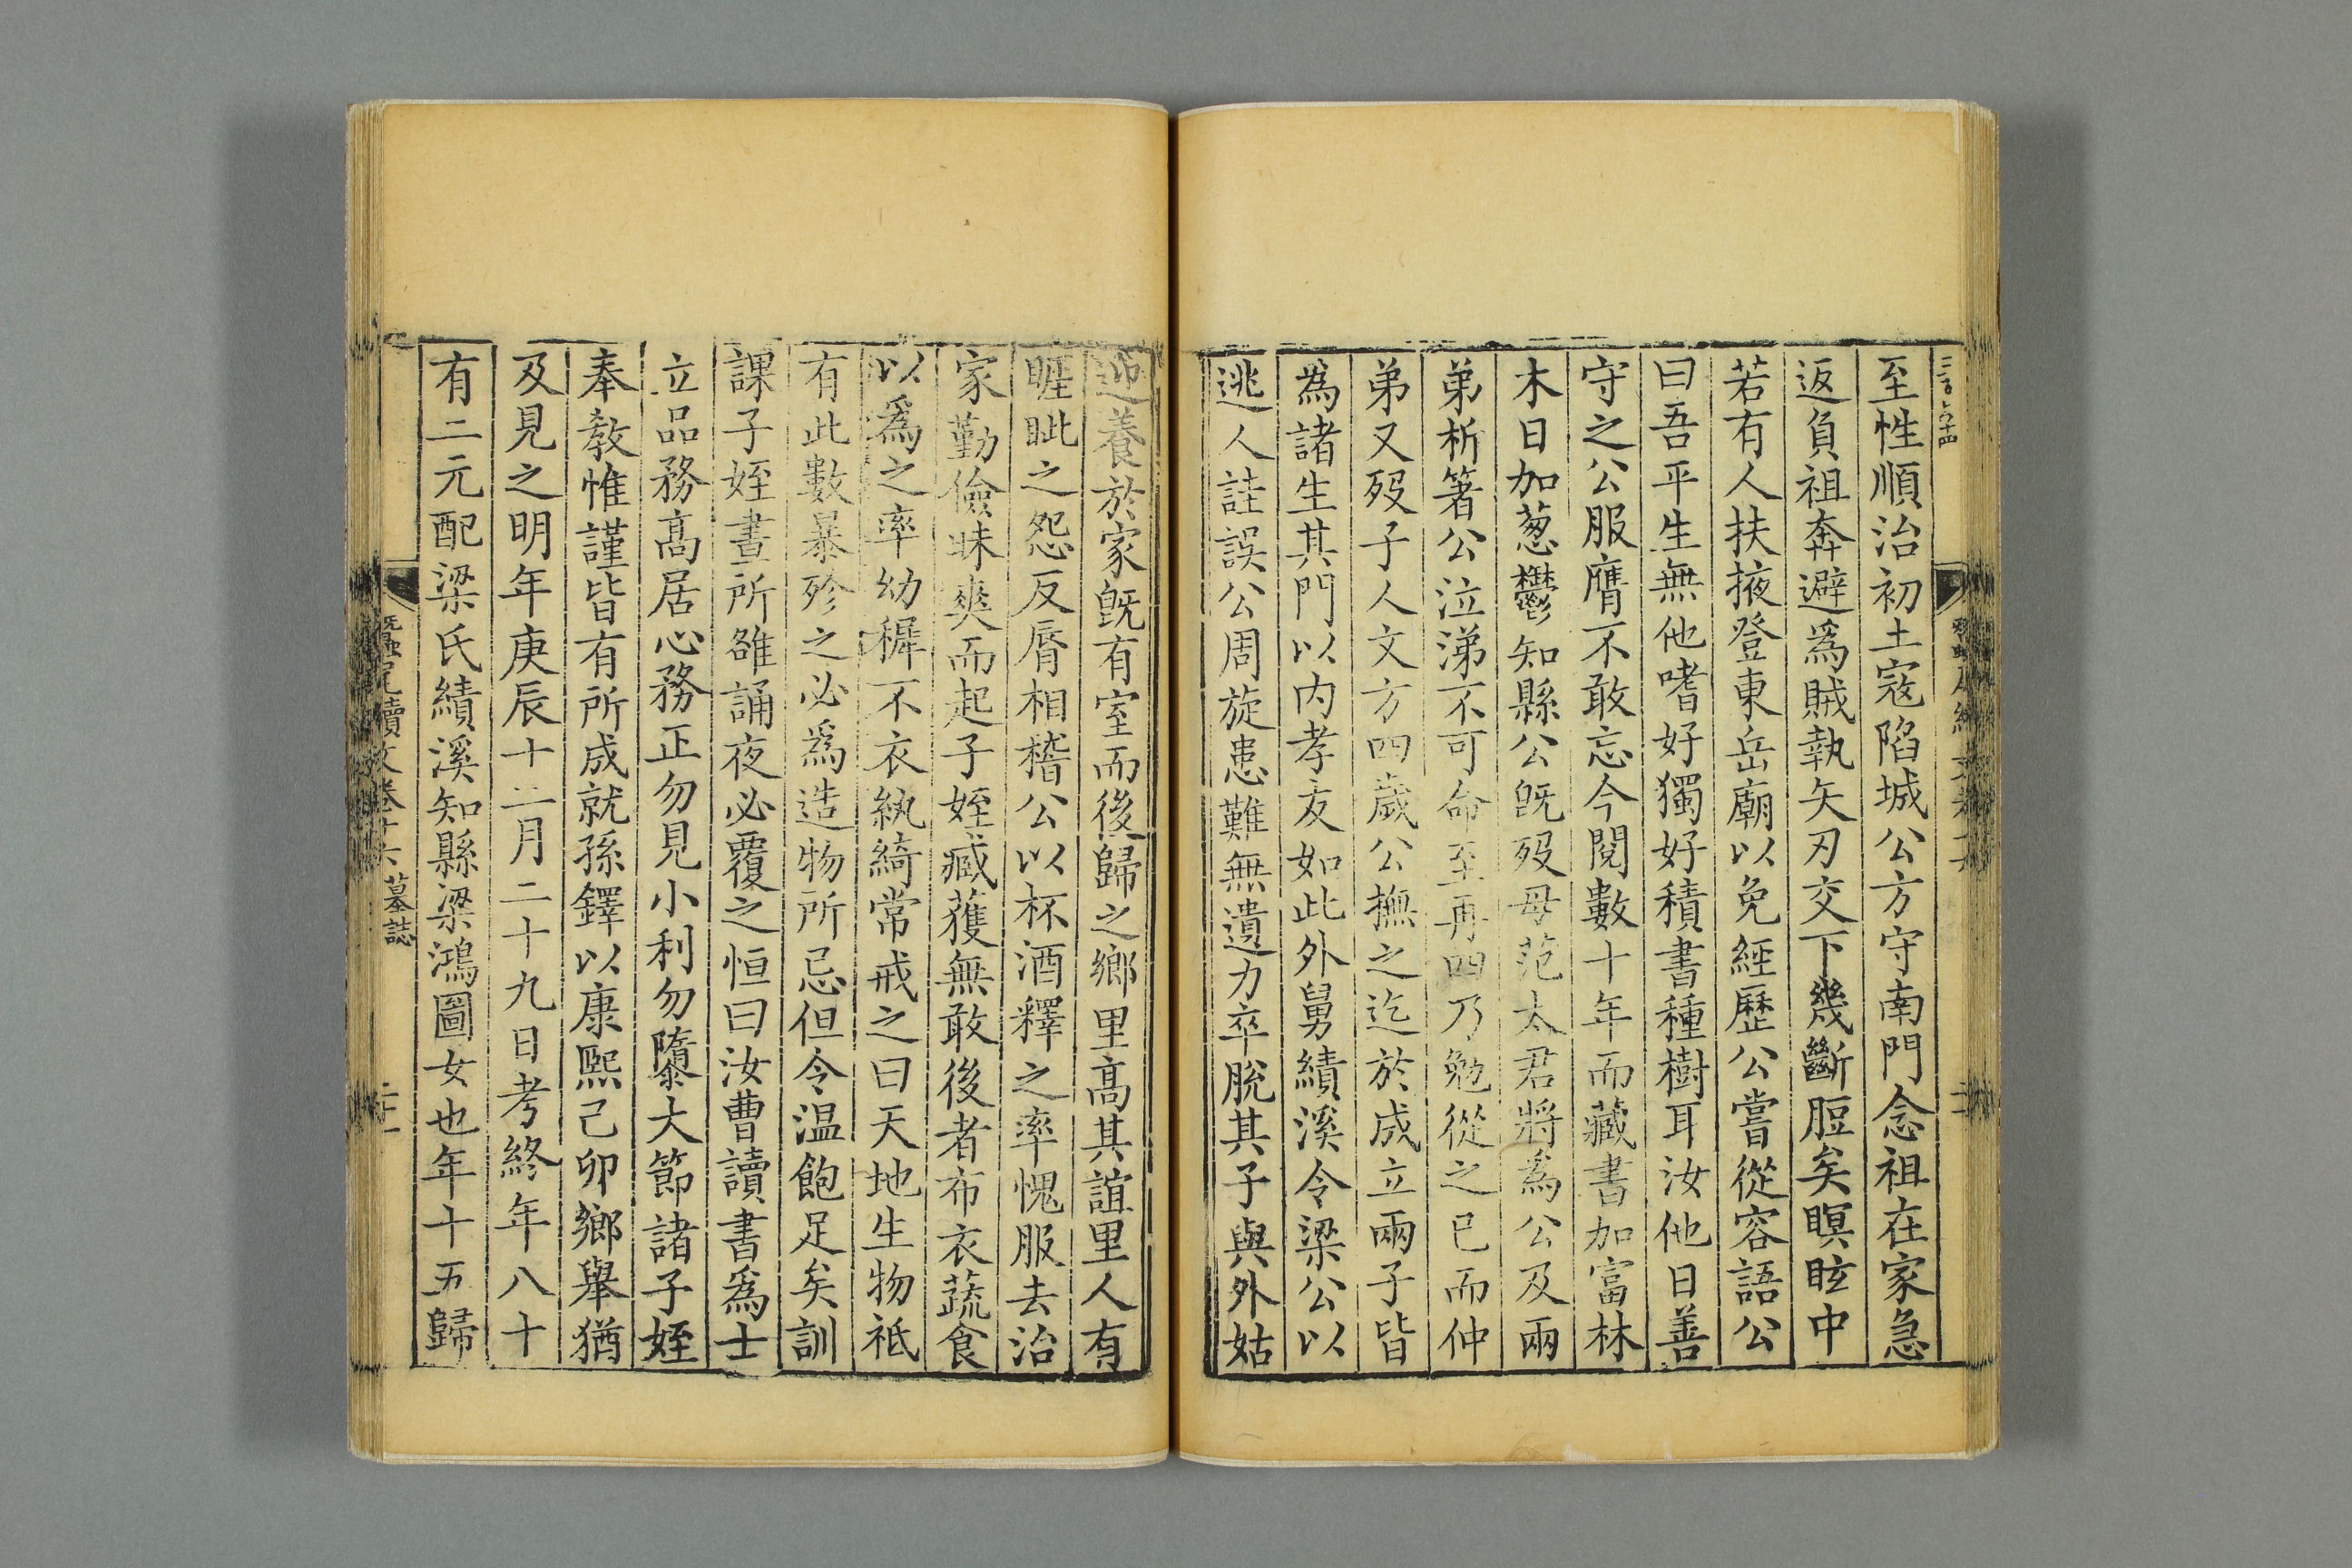 至性順治初土寇陷城公方守南門念祖在家急
返負祖奔避爲賊執矢刃交下幾斷脰矣瞑眩中
若有人扶掖登東岳廟以免經歷公嘗從容語公
曰吾平生無他嗜好獨好積書種樹耳汝他日善
守之公服膺不敢忘今閱數十年而藏書加富林
木日加葱鬱知縣公旣歿母范太君將爲公及兩
弟析箸公泣涕不可命至再四乃勉從之已而仲
弟又歿子人文方四歲公撫之迄於成立兩子皆
爲諸生其門以内孝友如此外舅績溪令梁公以
逃人詿誤公周旋患難無遺力卒脫其子與外姑
迎養於家旣有室而後歸之鄉里高其誼里人有
睚眦之怨反脣相稽公以杯酒釋之率愧服去治
家勤儉昧爽而起子姪臧獲無敢後者布衣蔬食
以爲之率幼穉不衣紈綺常戒之曰天地生物祇
有此數暴殄之必爲造物所忌但令温飽足矣訓
課子姪晝所雒誦夜必覆之恒曰汝曹讀書爲士
立品務髙居心務正勿見小利勿隳大節諸子姪
奉敎惟謹皆有所成就孫鐸以康熙己卯鄉舉猶
及見之明年庚辰十二月二十九日考終年八十
有二元配梁氏績溪知縣梁鴻圖女也年十五歸
蠶尾續文卷十六 墓誌